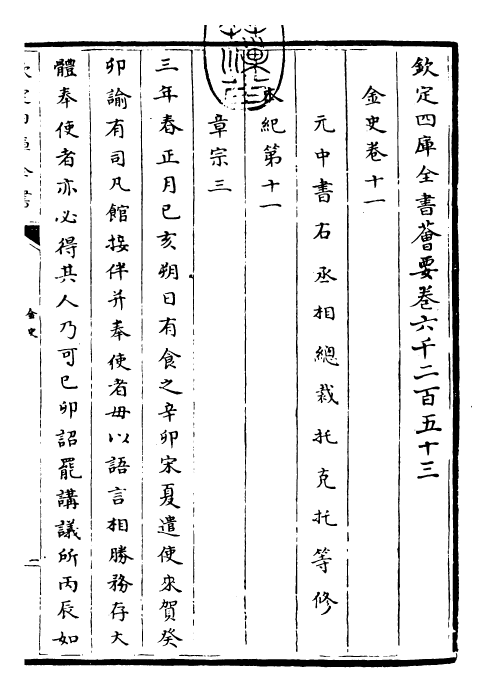 欽定四庫全書薈要卷六千二百五十三
金史卷十一
元中書右丞相總裁托克托等修
本紀第十一
章宗三
三年春正月己亥朔日有食之辛卯宋夏遣使來賀癸
卯諭有司凡館接伴并奉使者毋以語言相勝務存大
體奉使者亦必得其人乃可己卯詔罷講議所丙辰如
金史
一